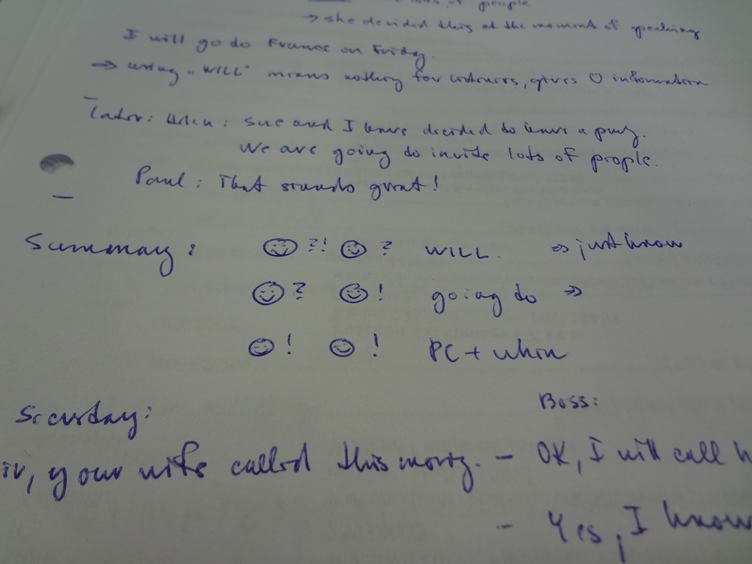 of people
→ she decided this at the moment of speaking
I will go to France on Friday.
→ using "WILL" means nothing for listeners, gives 0 information
Later: Helen: Sue and I have decided to have a party.
We are going to invite lots of people.
Paul: That sounds great!
Summary: ?! ? WILL. ⇒ just now
? ! going to ⇒
! ! PC + when
Secretary: Boss:
ir, your wife called this morning. - OK, I will call h
- Yes, I know